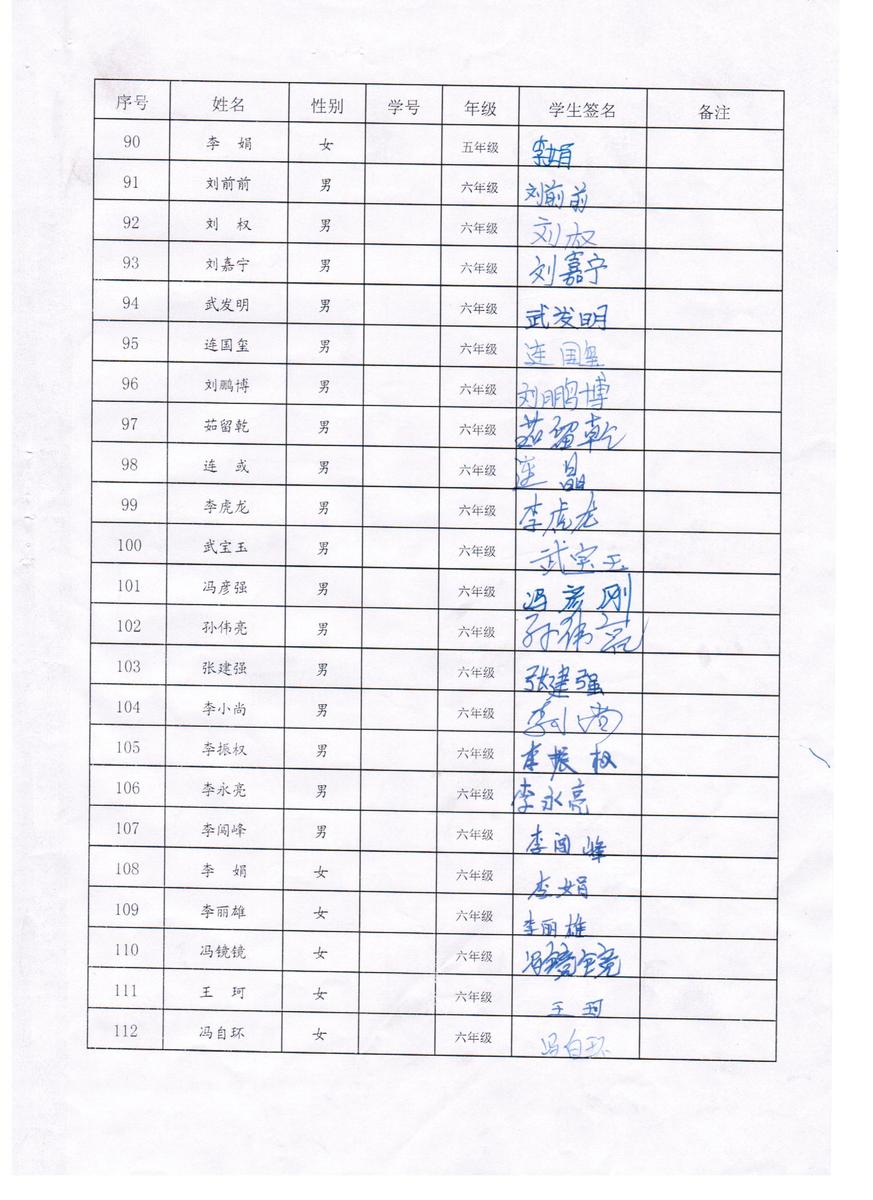 序号 姓名 性别 学号 年级 学生签名 备注
90 李 娟 女 五年级 李娟
91 刘前前 男 六年级 刘前前
92 刘 权 男 六年级 刘权
93 刘嘉宁 男 六年级 刘嘉宁
94 武发明 男 六年级 武发明
95 连国玺 男 六年级 连国玺
96 刘鹏博 男 六年级 刘鹏博
97 茹留乾 男 六年级 茹留乾
98 连 或 男 六年级 连晶
99 李虎龙 男 六年级 李虎龙
100 武宝玉 男 六年级 武宝玉
101 冯彦强 男 六年级 冯彦刚
102 孙伟亮 男 六年级 孙伟亮
103 张建强 男 六年级 张建强
104 李小尚 男 六年级 李小尚
105 李振权 男 六年级 李振权
106 李永亮 男 六年级 李永亮
107 李闯峰 男 六年级 李闯峰
108 李 娟 女 六年级 李娟
109 李丽雄 女 六年级 李丽雄
110 冯镜镜 女 六年级 冯镜镜
111 王 珂 女 六年级 王珂
112 冯自环 女 六年级 冯自环